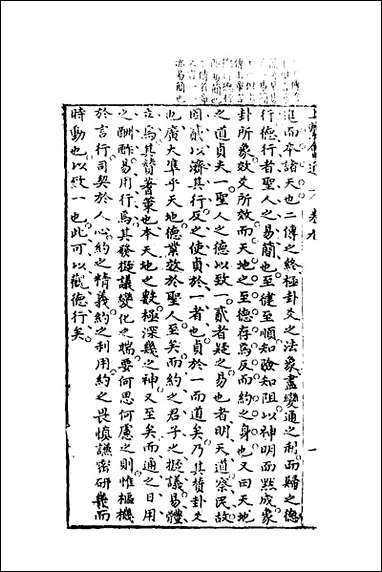 進而本諸天也二傳之終極卦爻之法象盡變通之利而歸之德
行德行者聖人之易簡也至健至順知險知阻以神明而默成象
卦所象效爻所效而天地之至德存焉反而約之身也又曰天地
之道貞夫一聖人之德以致一貳者疑之易也者明天道察民故
因貳以濟其行反之使貞於一者也貞於一而道矣乃其贊卦爻
也廣大準乎天地德業效於聖人至矣而約之君子之擬議易體
立焉其贊蓍筴也本天地之數極深幾之神又至矣而通之日用
之酬酢易用行焉其發擬議變化之端要何思何慮之則惟樞機
於言行司契於人心約之精義約之利用約之畏慎謙密研幾而
時動也以致一也此可以觀德行矣